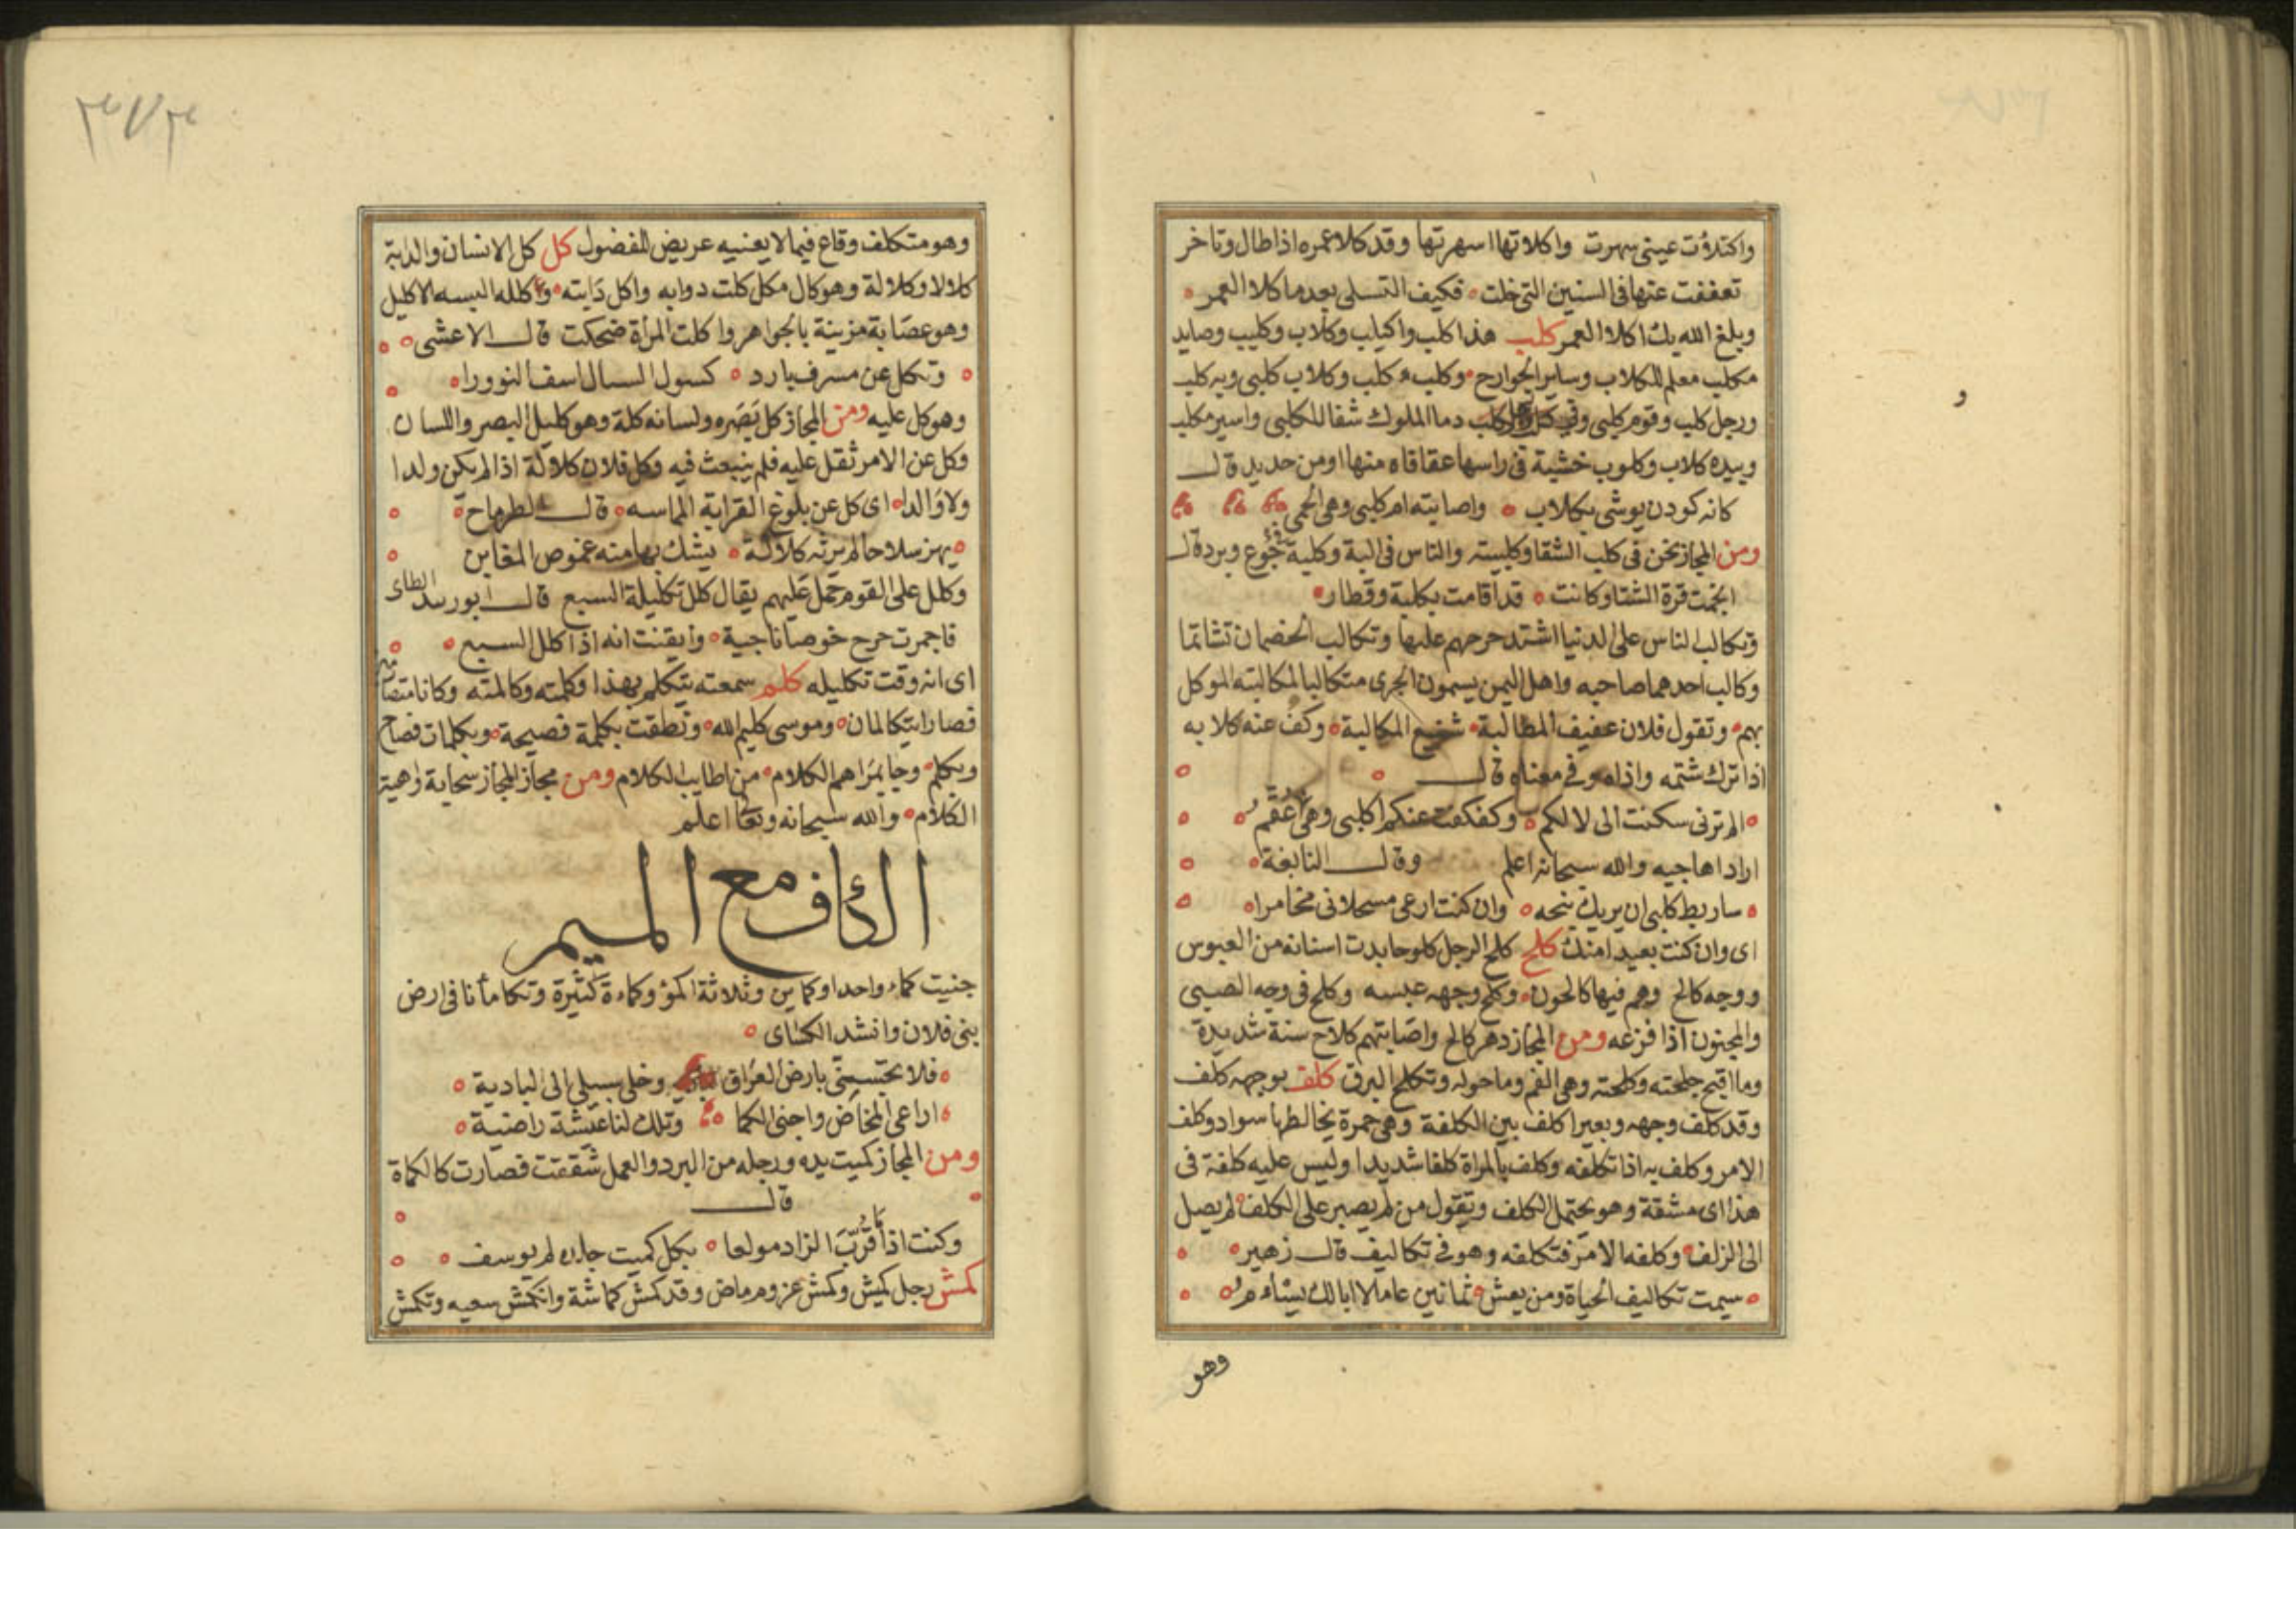 واكتلأت عيني سهرت واكلاتها اسهرتها وقد كلا عمره اذا طال وتاخر
تعففت عنها في السنين التي خلت فكيف التسلي بعد ما كلا العمر
وبلغ الله بك اكلا العمر كلب هذا كلب واكلب وكلاب وكليب وصايد
مكلب معلم للكلاب وساير الجوارح وكلب كلب وكلاب كلبى وبه كلب
ورجل كلب وقوم كلبى وفي دما الملوك شفا للكلبى واسير مكلب
وبيده كلاب وكلوب خشبة في راسها عقافة منها او من حديد قال
كانه كودن يوشى بكلاب واصابته ام كلبى وهي الحمى
ومن المجاز نحن في كلب الشتا وكلبته والناس في البة وكلبة جوع وبرد قال
انجمت قرة الشتا وكانت قد اقامت بكلبة وقطار
وتكالب الناس على الدنيا اشتد حرصهم عليها وتكالب الخصمان تشاتما
وكالب احدهما صاحبه واهل اليمن يسمون الجرى متكالبا لمكالبته الموكل
بهم وتقول فلان عفيف المطالبة شنيع المكالبة وكف عنه كلابه
اذا ترك شتمه واذاه وفي معناه قال
الم ترنى سكنت الى لالكم وكفكفت عنكم اكلبى وهى عقم
اراد اهاجيه والله سبحانه اعلم وقال النابغة
ساربط كلبى ان يريبك نبحه وان كنت ارعى مسحلانى مخامرا
اى وان كنت بعيدا منك كلح كلح الرجل كلوحا بدت اسنانه من العبوس
ووجه كالح وهم فيها كالحون وكلح وجهه عبسه وكلح في وجه الصبى
والمجنون اذا فزعه ومن المجاز دهر كالح واصابتهم كلاح سنة شديدة
وما اقبح جلحته وكلحته وهى الفم وما حوله وتكلح البرق كلف بوجهه كلف
وقد كلف وجهه وبعير اكلف بين الكلفة وهى حمرة يخالطها سواد وكلف
الامر وكلف به اذا تكلفه وكلف بالمراة كلفا شديدا وليس عليه كلفة في
هذا اى مشقة وهو يحتمل الكلف وتقول من لم يصبر على الكلف لم يصل
الى الزلف وكلفه الامر فتكلفه وهو في تكاليف قال زهير
سيمت تكاليف الحياة ومن يعش ثمانين عاما لا ابا لك يسام
وهو
و
٣٧٣
وهو متكلف وقاع فيما لا يعنيه عريض للفضول كل كل الانسان والدابة
كلالا وكلالة وهو كال مكل كلت دوابه واكل دابته وكلله البسه الاكليل
وهو عصابة مزينة بالجواهر واكلت المراة ضحكت قال الاعشى
وتكل عن مشرف بارد كشوك السيال اسف النوورا
وهو كل عليه ومن المجاز كل بصره ولسانه كلة وهو كليل البصر واللسان
وكل عن الامر ثقل عليه فلم ينبعث فيه وكل فلان كلالة اذا لم يكن ولدا
ولا والدا اى كل عن بلوغ القرابة المماسه قال الطرماح
يهز سلاحا لم يرثه كلالة يشك بها منه غموض المغابن
وكلل على القوم حمل عليهم يقال كلل تكليلة السبع قال ابو زبيد الطاى
وايقنت انه اذا كلل السبع
اى انه وقت تكليله كلم سمعته يتكلم بهذا وكلمته وكالمته وكانا
فصارا يتكالمان وموسى كليم الله ونطقت بكلمة فصيحة وبكلمات فصاح
وبكلم وجا بمراهم الكلام من اطايب الكلام ومن مجاز المجاز
الكلام والله سبحانه وتعالى اعلم
الكاف مع الميم
جنيت كماء واحدا وكماين وثلاثة اكمؤ وكماءة كثيرة وتكامأنا في ارض
بنى فلان وانشد الكساى
فلا بارض العراق وخلى سبيلى الى البادية
اراعى المخاض واجنى الكما وتلك لنا عيشة راضية
ومن المجاز كميت يده ورجله من البرد والعمل شققت فصارت كالكماة
قال
وكنت اذا ما قرب الزاد مولعا بكل كميت جلدة لم يوسف
كمش رجل كميش وكمش عزوم ماض وقد كمش كماشة وانكمش سعيه وتكمش